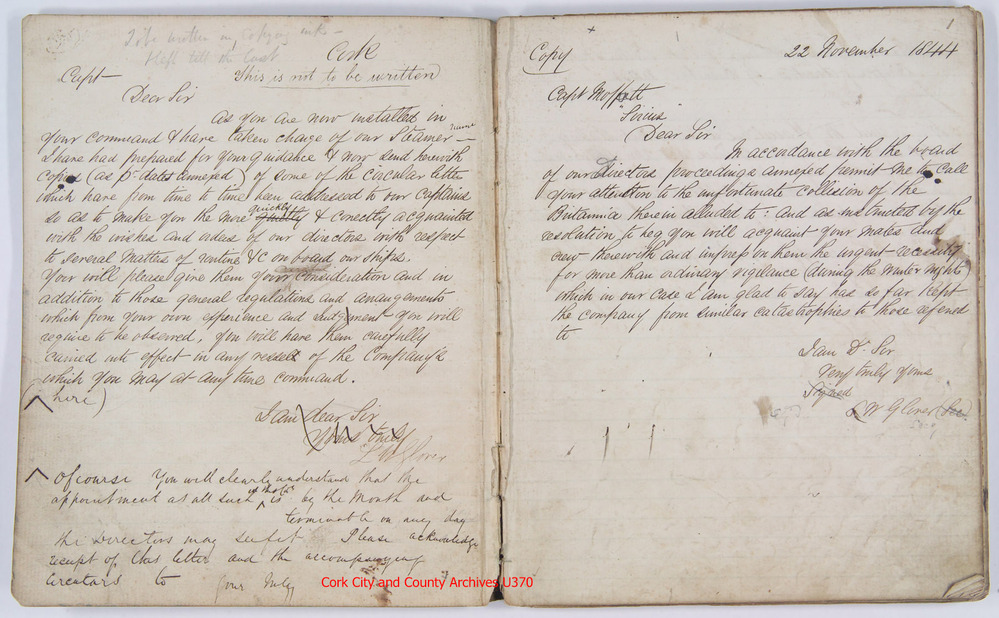 To be written in Copying ink -
& left till the last
Cork
This is not to be written
Capt
Dear Sir
As you are now installed in
your command & have taken charge of our Steamer - name
I have had prepared for your guidance & now send herewith
copies (as pr dates annexed) of some of the circular letter
which have from time to time been addressed to our Captains
so as to make you the more quickly & correctly acquainted
with the wishes and orders of our directors with respect
to several matters of routine &c on board our ships.
You will please give them your consideration and in
addition to those general regulations and arrangements
which from your own experience and judgment you will
require to be observed, you will have them carefully
carried into effect in any vessel of the Company's
which you may at any time command.
(here)
I am dear Sir
Yours truly
L W Glover
Of course you will clearly understand that the
appointment as all such is by the month and
terminable on any day
the Directors may see fit. Please acknowledge
receipt of this letter and the accompanying
circulars to yours truly
1
Copy 22 November 1844
Capt Moffett
"Sirius"
Dear Sir
In accordance with the board
of our Directors proceedings annexed permit me to call
your attention to the unfortunate collision of the
Britannia therein alluded to: and as instructed by the
resolution to beg you will acquaint your mates and
crew therewith and impress on them the urgent necessity
for more than ordinary vigilance (during the winter nights)
which in our case I am glad to say has so far kept
the company from similar catastrophies to those refered
to
I am Dr Sir
Very truly yours
Signed
L W Glover Sec
Secy
Cork City and County Archives U370